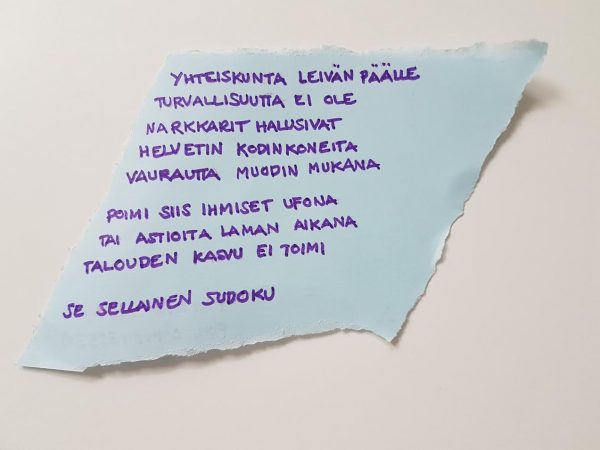 YHTEISKUNTA LEIVÄN PÄÄLLE
TURVALLISUUTTA EI OLE
NARKKARIT HALUSIVAT
HELVETIN KODINKONEITA
VAURAUTTA MUODIN MUKANA
POIMI SIIS IHMISET UFONA
TAI ASTIOITA LAMAN AIKANA
TALOUDEN KASVU EI TOIMI
SE SELLAINEN SUDOKU